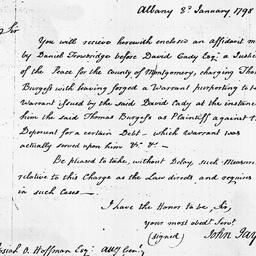 Albany 8th January 1798
Sir
You will recieve herewith enclosed an affidavit m
by Daniel Trowbridge before David Cady Esqr. a Justice
of the Peace for the County of Montgomery, charging Thom
Burgess with leaving forged a Warrant purporting to be
Warrant issued by the said David Cady at the instance
him the said Thomas Burgess as Plaintiff against th
Deponent for a certain Debt - which warrant was
actually served upon him &c. &c. -
Be pleased to take, without Delay, such Measures
relative to this Charge as the Law directs and requires
in such cases -
I have the Honor to be, Sir,
your most obedt. Servt.
(signed) John Jay
Josiah O. Hoffman Esqr. Atty Genl.